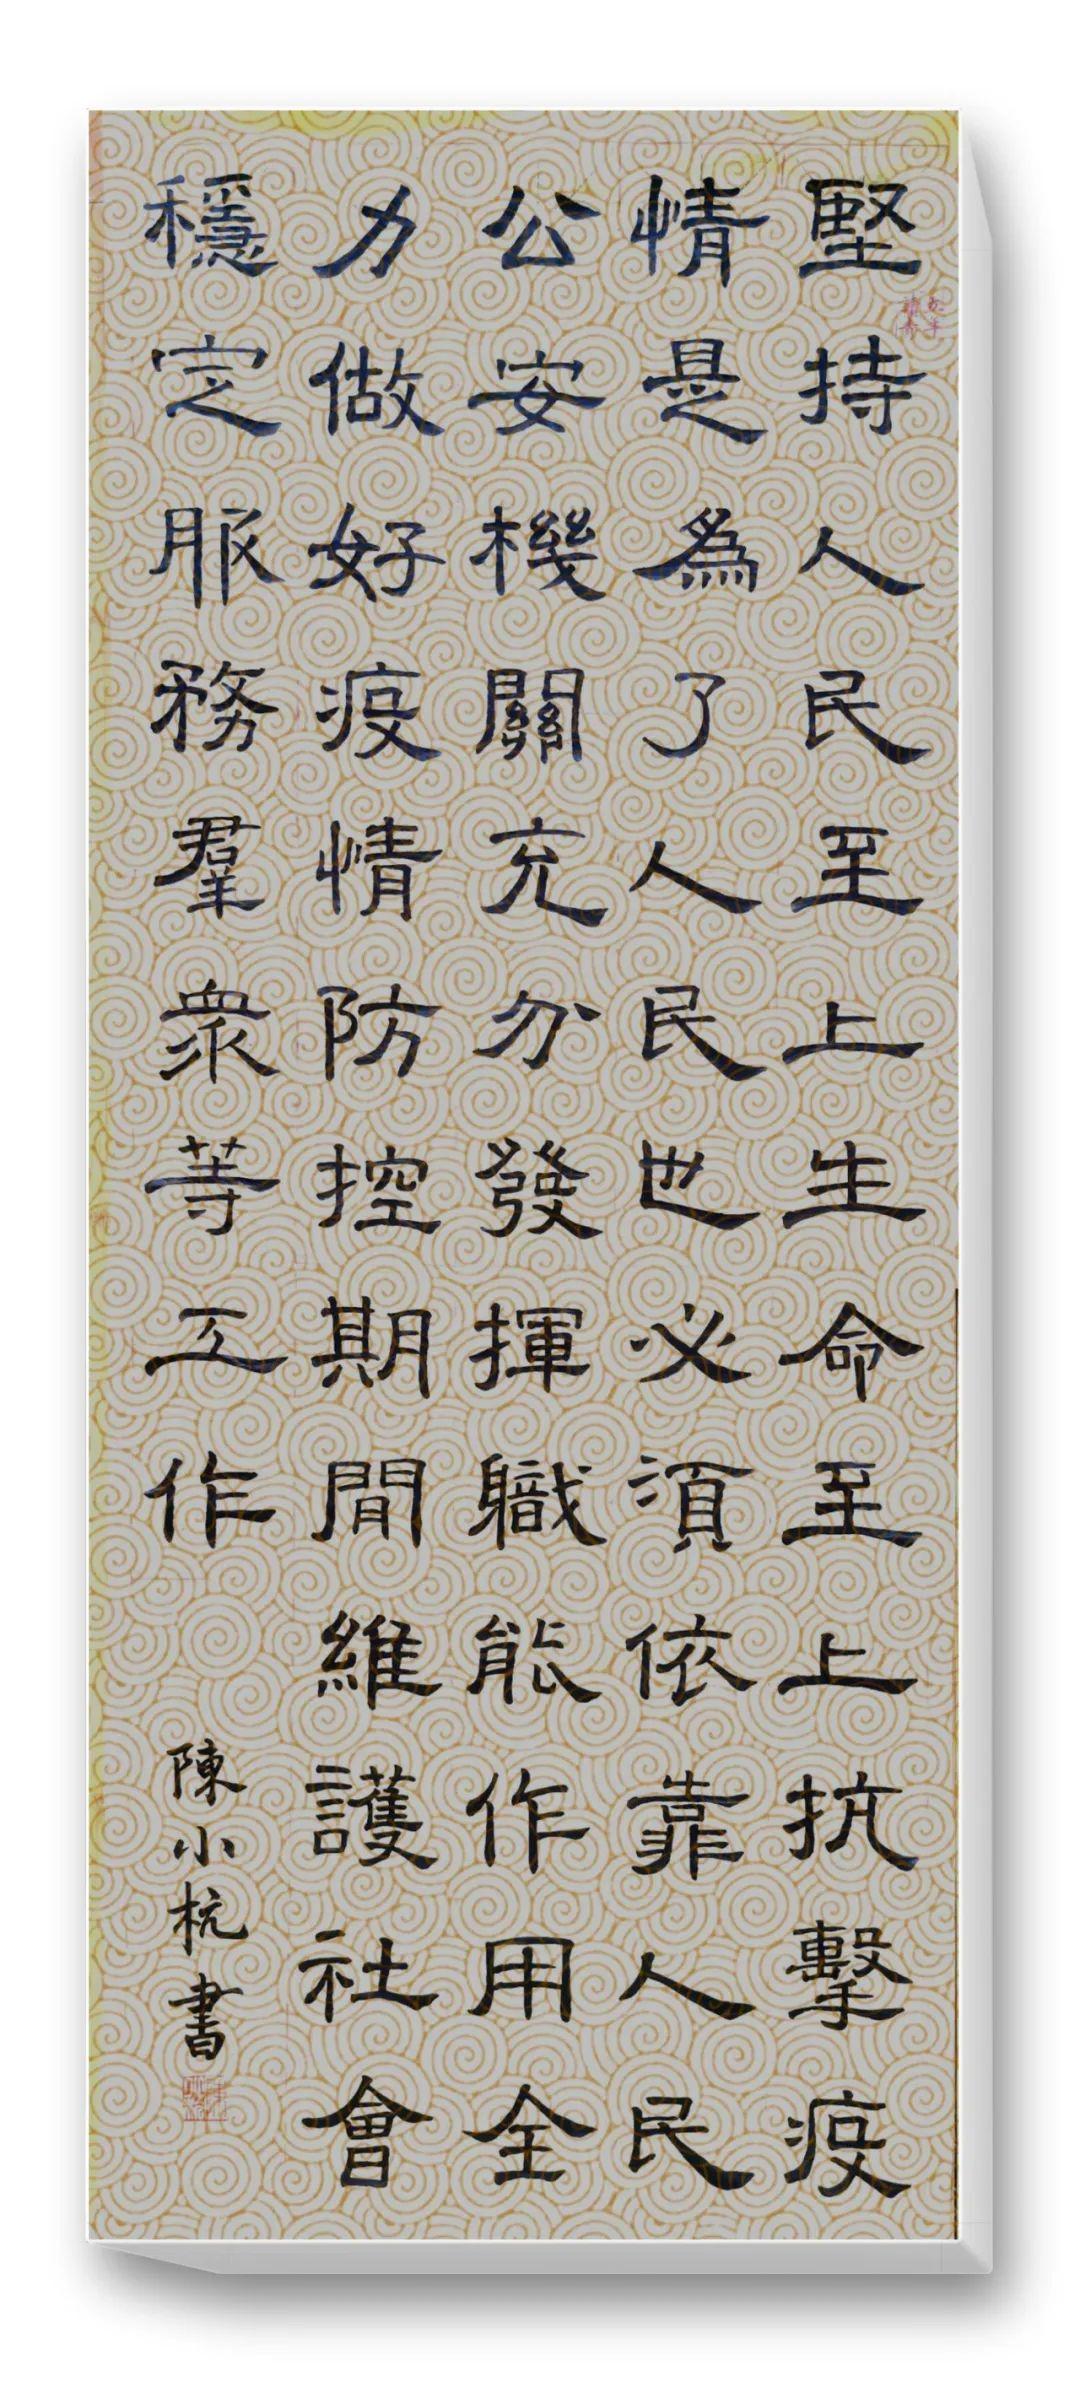 堅持人民至上生命至上抗擊疫
情是為了人民也必須依靠人民
公安機關充分發揮職能作用全
力做好疫情防控期間維護社會
穩定服務羣衆等工作
陳小杭書